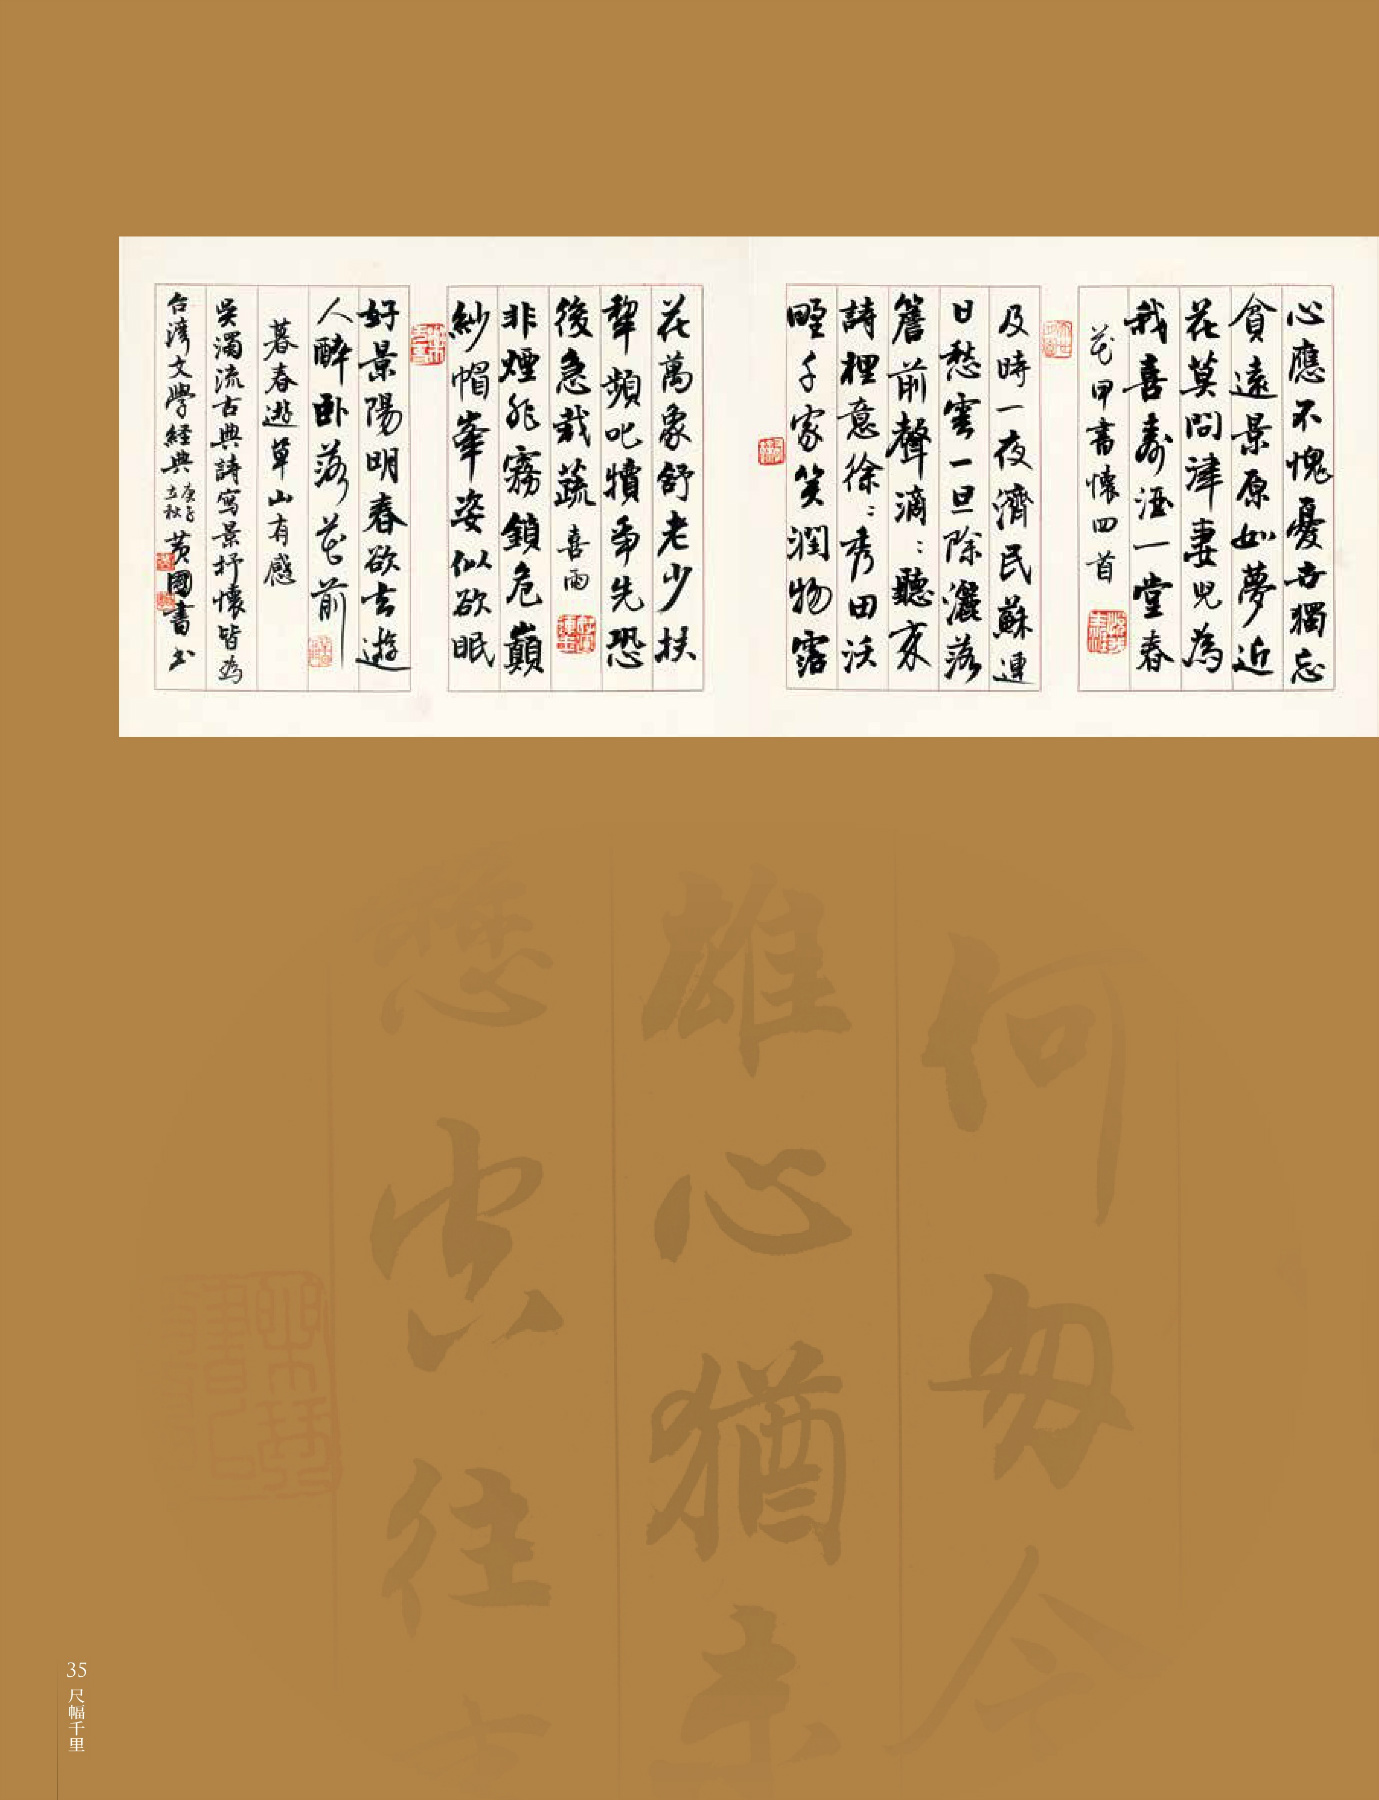 心應不愧憂古獨忘
貧遠景原如夢近
花莫問津妻兒為
我喜壽酒一堂春
花甲書懷四首
及時一夜濟民蘇連
日愁雲一旦除灑落
簷前聲滴:聽來
詩裡意徐:秀田沃
野千家笑潤物露
花萬象舒老少扶
犂頻叱犢爭先恐
後急栽蔬 喜雨
非煙非霧鎖危巔
紗帽峯姿似欲眠
好景陽明春欲去遊
人醉臥落花前
暮春遊草山有感
吳濁流古典詩寫景抒懷皆為
台灣文學経典 庚子立秋 黃國書書
何
匆
今
雄心猶未
往
35 尺幅千里